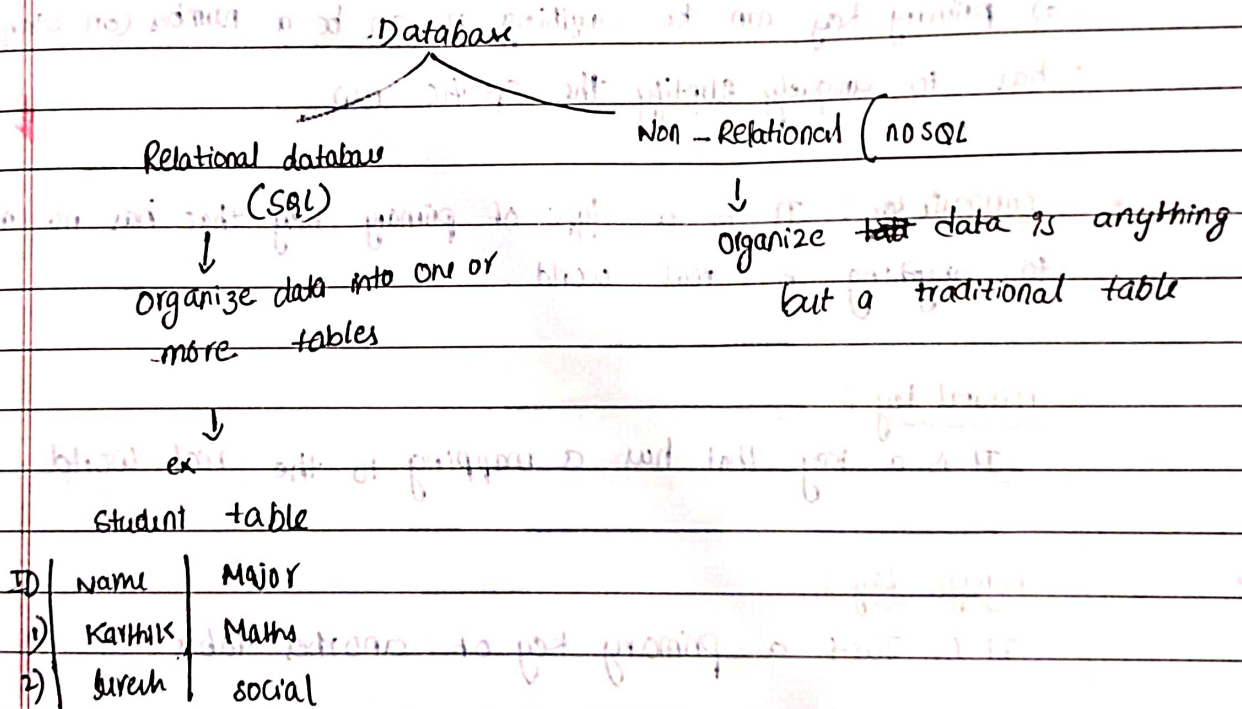 Database
Relational database
(SQL)
↓
organize data into one or
more tables
↓
ex
Student table
ID | Name | Major
1) | Karthik | Maths
2) | Suresh | social
Non - Relational ( no SQL
↓
organize data is anything
but a traditional table